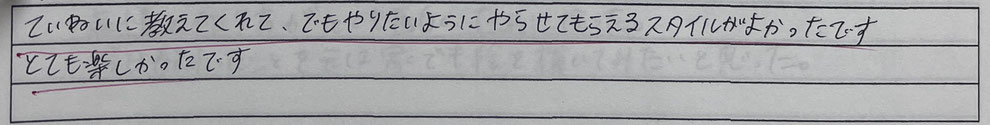 ていねいに教えてくれて、でもやりたいようにやらせてもらえるスタイルがよかったです
とても楽しかったです